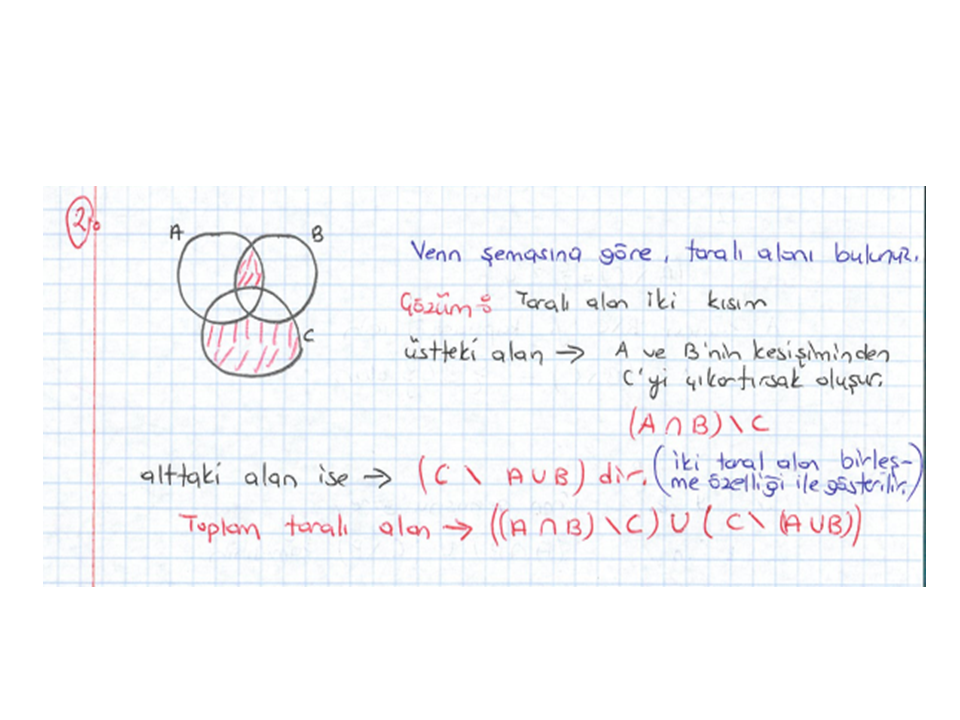 2.
A B
C
Venn şemasına göre, taralı alanı bulunuz.
Çözüm: Taralı alan iki kısım
üstteki alan → A ve B'nin kesişiminden
C'yi çıkartırsak oluşur.
(A ∩ B) \ C
alttaki alan ise → (C \ A ∪ B) dir. (iki taral alan birleş-
me özelliği ile gösterilir.)
Toplam taralı alan → ((A ∩ B) \ C) ∪ (C \ (A ∪ B))